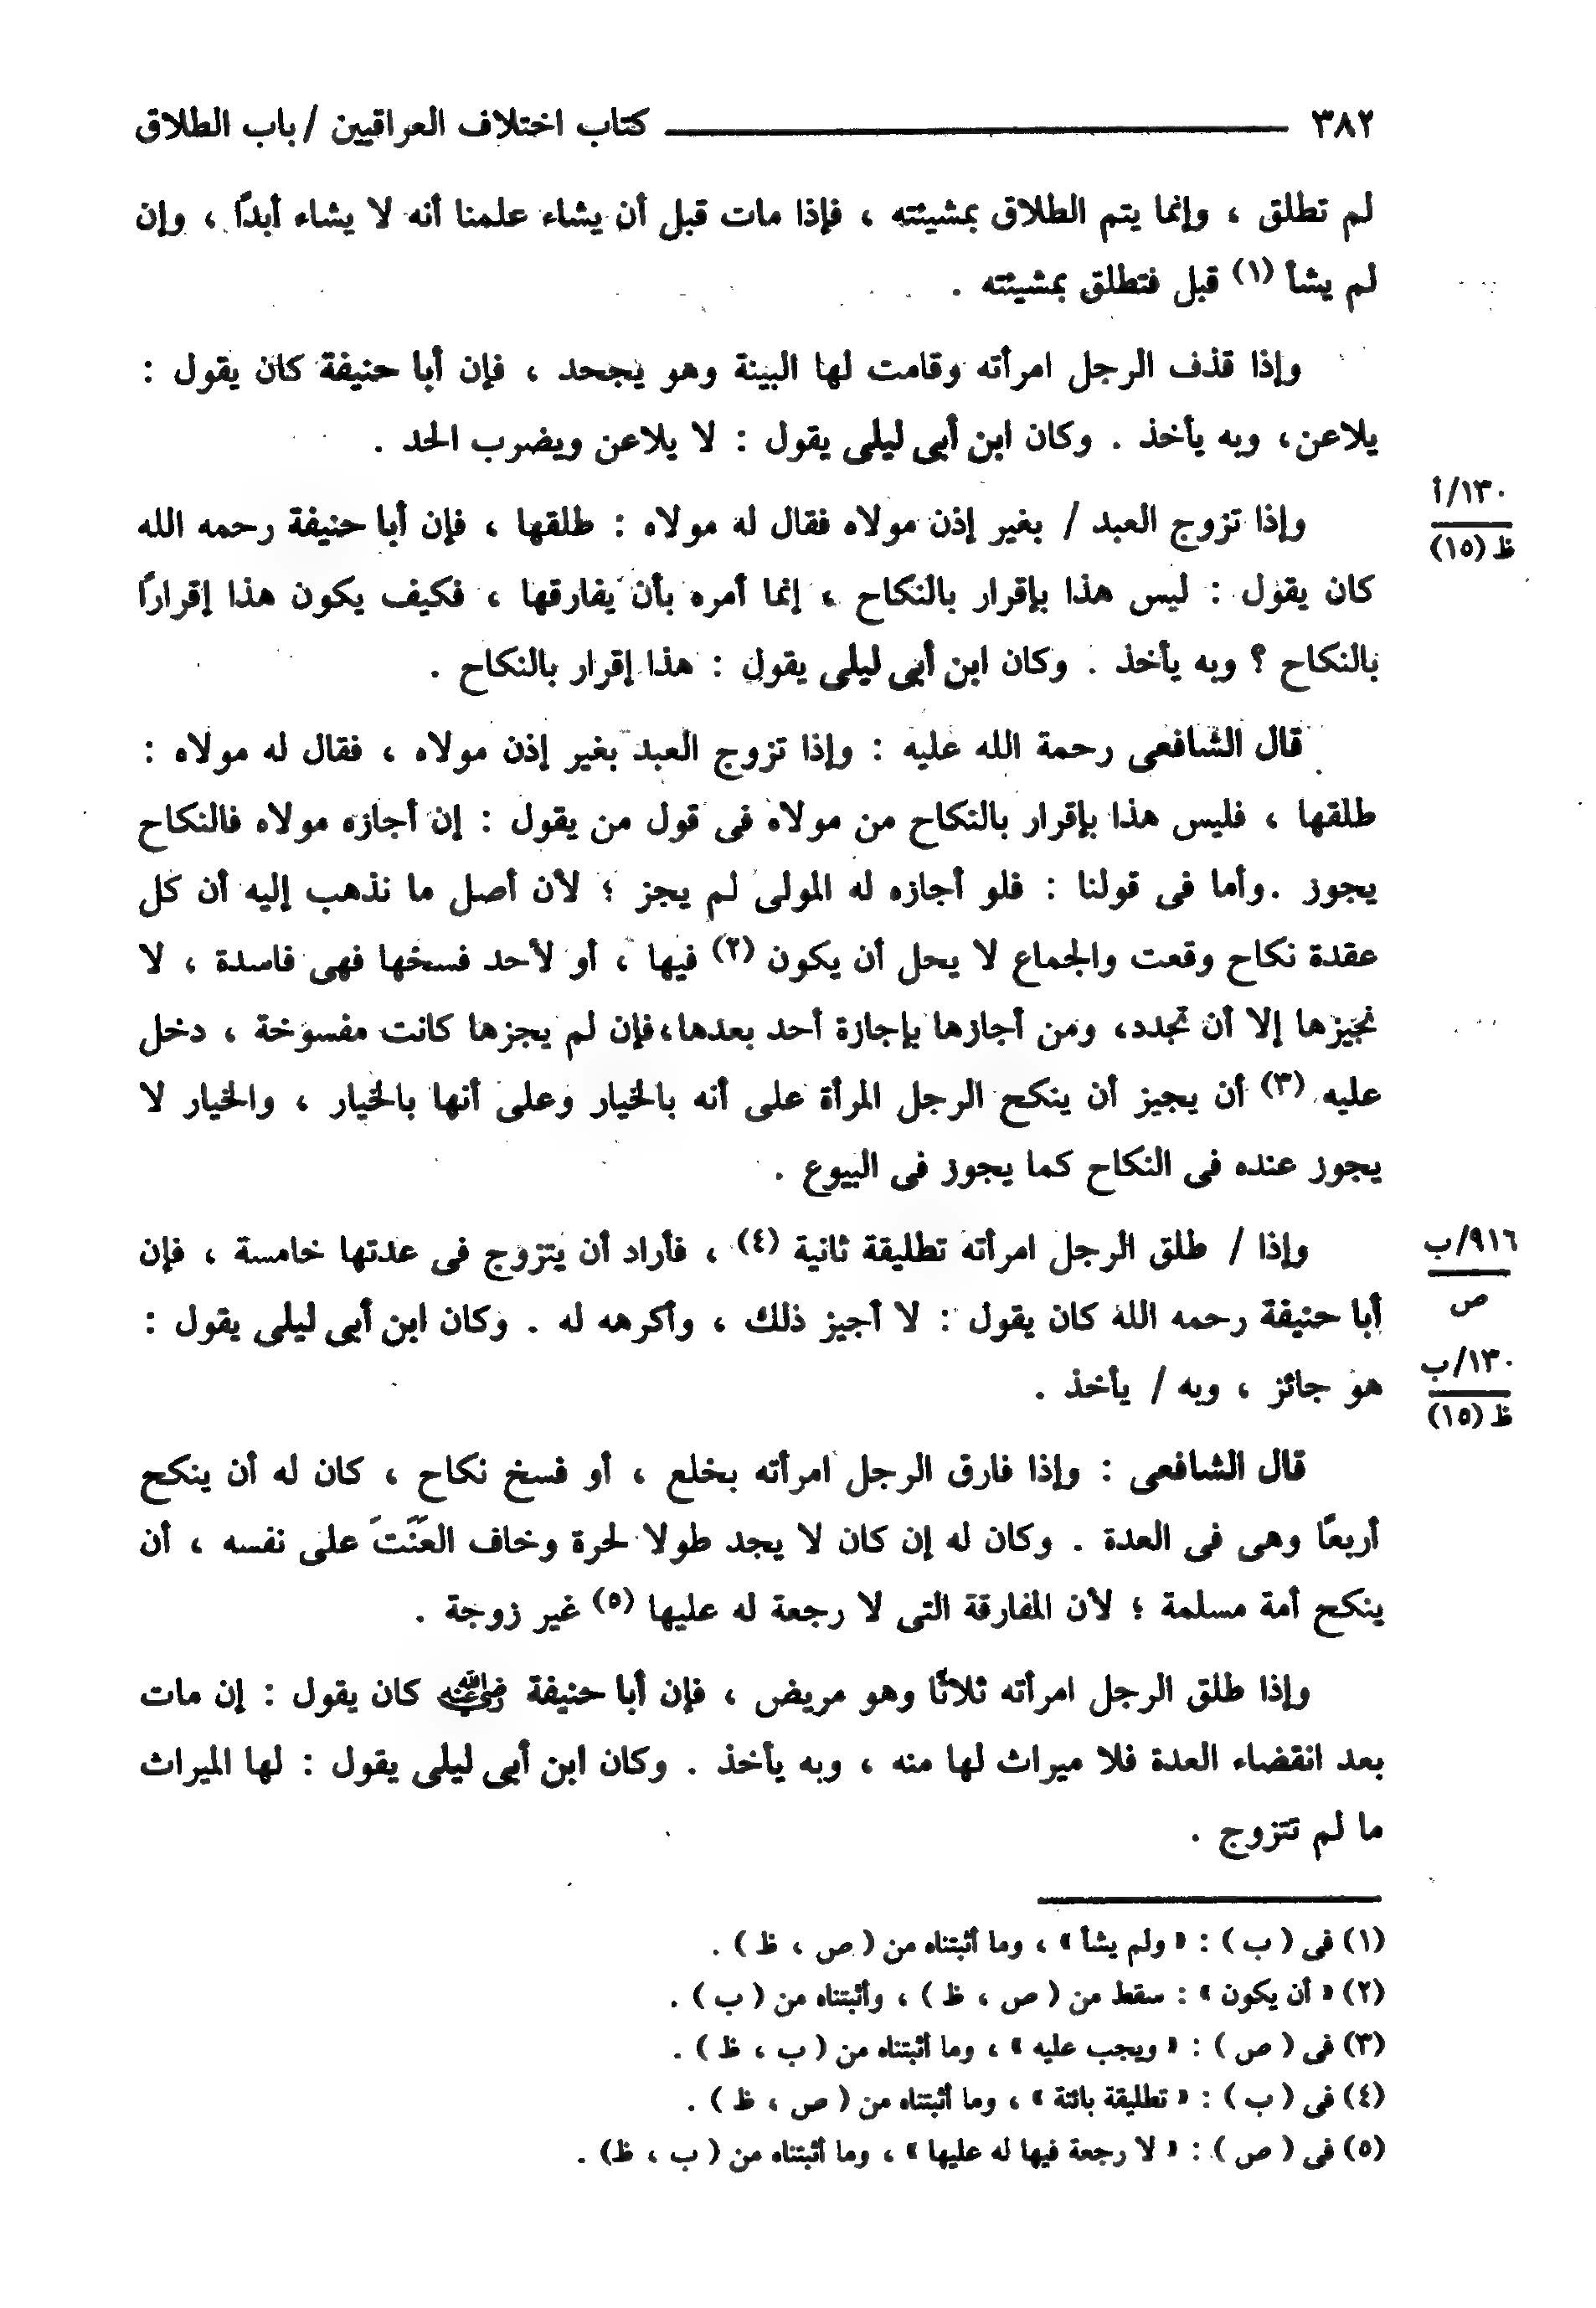 ٣٨٢ ــــــ كتاب اختلاف العراقيين / باب الطلاق
لم تطلق ، وإنما يتم الطلاق بمشيئته ، فإذا مات قبل أن يشاء علمنا أنه لا يشاء أبدًا ، وإن
لم يشأ (١) قبل فتطلق بمشيئته .
وإذا قذف الرجل امرأته وقامت لها البينة وهو يجحد ، فإن أبا حنيفة كان يقول :
يلاعن، وبه يأخذ . وكان ابن أبى ليلى يقول : لا يلاعن ويضرب الحد .
١٣٠/أ
ظ (١٥)
وإذا تزوج العبد / بغير إذن مولاه فقال له مولاه : طلقها ، فإن أبا حنيفة رحمه الله
كان يقول : ليس هذا بإقرار بالنكاح ، إنما أمره بأن يفارقها ، فكيف يكون هذا إقرارًا
بالنكاح ؟ وبه يأخذ . وكان ابن أبى ليلى يقول : هذا إقرار بالنكاح .
قال الشافعى رحمة الله عليه : وإذا تزوج العبد بغير إذن مولاه ، فقال له مولاه :
طلقها ، فليس هذا بإقرار بالنكاح من مولاه فى قول من يقول : إن أجازه مولاه فالنكاح
يجوز .وأما فى قولنا : فلو أجازه له المولى لم يجز ؛ لأن أصل ما نذهب إليه أن كل
عقدة نكاح وقعت والجماع لا يحل أن يكون (٢) فيها ، أو لأحد فسخها فهى فاسدة ، لا
نجيزها إلا أن تجدد، ومن أجازها بإجازة أحد بعدها،فإن لم يجزها كانت مفسوخة ، دخل
عليه (٣) أن يجيز أن ينكح الرجل المرأة على أنه بالخيار وعلى أنها بالخيار ، والخيار لا
يجوز عنده فى النكاح كما يجوز فى البيوع .
٩١٦/ب
ص
وإذا / طلق الرجل امرأته تطليقة ثانية (٤) ، فأراد أن يتزوج فى عدتها خامسة ، فإن
أبا حنيفة رحمه الله كان يقول : لا أجيز ذلك ، وأكرهه له . وكان ابن أبى ليلى يقول :
١٣٠/ب
ظ (١٥)
هو جائز ، وبه / يأخذ .
قال الشافعى : وإذا فارق الرجل امرأته بخلع ، أو فسخ نكاح ، كان له أن ينكح
أربعًا وهى فى العدة . وكان له إن كان لا يجد طولا لحرة وخاف العَنَتَ على نفسه ، أن
ينكح أمة مسلمة ؛ لأن المفارقة التى لا رجعة له عليها (٥) غير زوجة .
وإذا طلق الرجل امرأته ثلاثًا وهو مريض ، فإن أبا حنيفة رضي الله عنه كان يقول : إن مات
بعد انقضاء العدة فلا ميراث لها منه ، وبه يأخذ . وكان ابن أبى ليلى يقول : لها الميراث
ما لم تتزوج .
(١) فى ( ب ) : « ولم يشأ » ، وما أثبتناه من ( ص ، ظ ) .
(٢) « أن يكون » : سقط من ( ص ، ظ ) ، وأثبتناه من ( ب ) .
(٣) فى ( ص ) : « ويجب عليه » ، وما أثبتناه من ( ب ، ظ ) .
(٤) فى ( ب ) : « تطليقة بائنة » ، وما أثبتناه من ( ص ، ظ ) .
(٥) فى ( ص ) : « لا رجعة فيها له عليها » ، وما أثبتناه من ( ب ، ظ) .